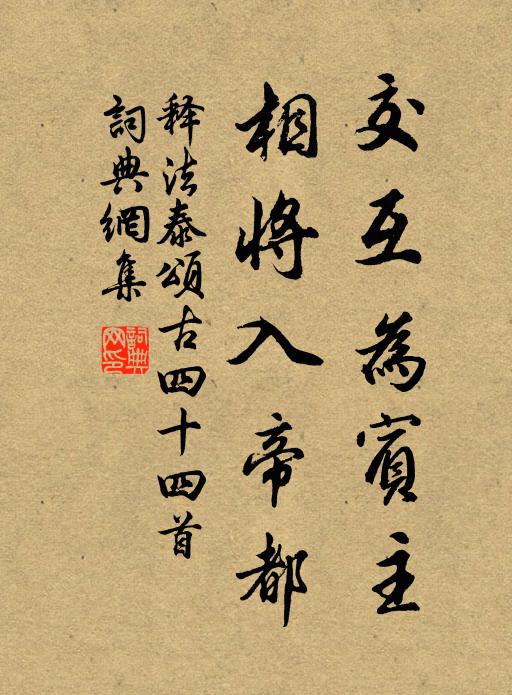 交互為賓主
相將入帝都
释法泰頌古四十四首
詞典網集
詞典网印